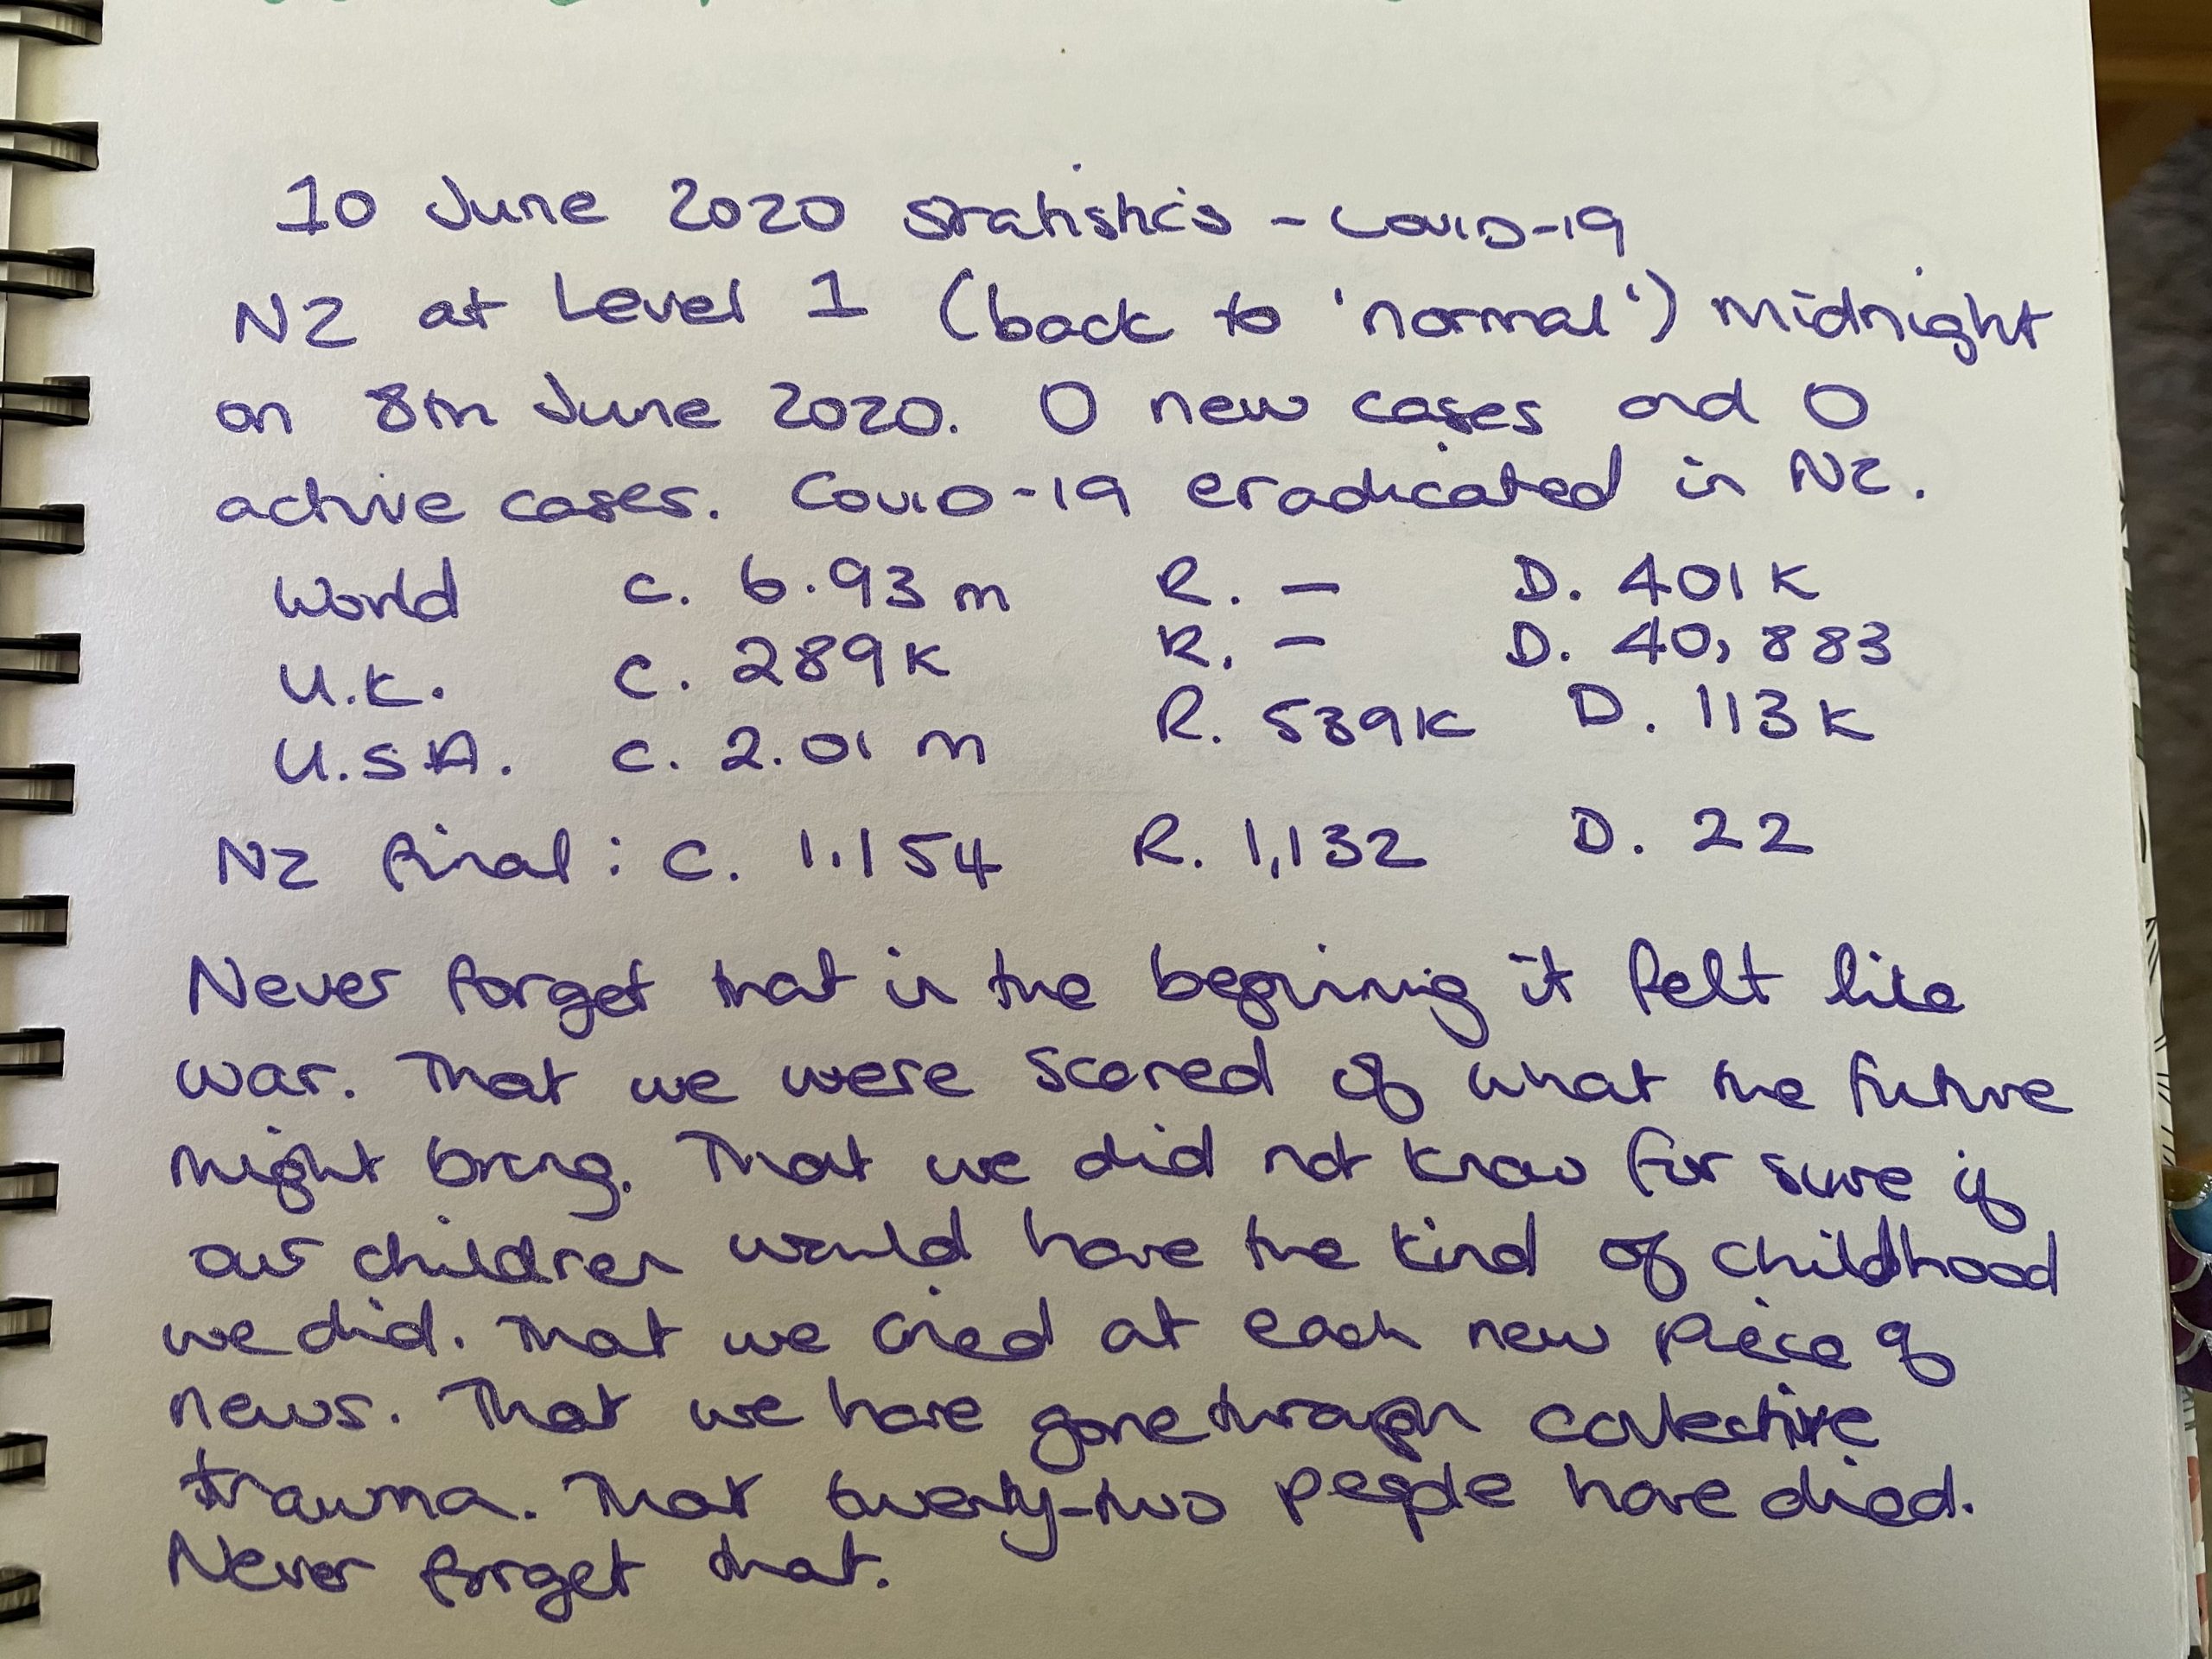 10 June 2020 statistics - COVID-19
NZ at Level 1 (back to 'normal') midnight
on 8th June 2020. 0 new cases and 0
active cases. COVID-19 eradicated in NZ.
World C. 6.93 m R. - D. 401K
U.K. C. 289K R. - D. 40,883
U.S.A. C. 2.01 m R. 539K D. 113K
NZ final: C. 1,154 R. 1,132 D. 22
Never forget that in the beginning it felt like
war. That we were scared of what the future
might bring. That we did not know for sure if
our children would have the kind of childhood
we did. That we cried at each new piece of
news. That we have gone through collective
trauma. That twenty-two people have died.
Never forget that.